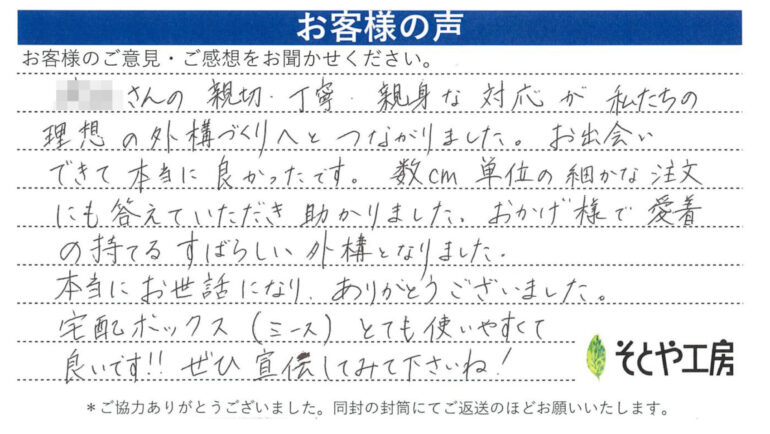 お客様の声
お客様のご意見・ご感想をお聞かせください。
さんの 親切・丁寧・親身な対応が私たちの
理想の外構づくりへとつながりました。お出会い
できて本当に良かったです。数cm単位の細かな注文
にも答えていただき助かりました。おかげ様で愛着
の持てるすばらしい外構となりました。
本当にお世話になり、ありがとうございました。
宅配ボックス(ミース)とても使いやすくて
良いです!!ぜひ宣伝してみて下さいね!
そとや工房
＊ご協力ありがとうございました。同封の封筒にてご返送のほどお願いいたします。